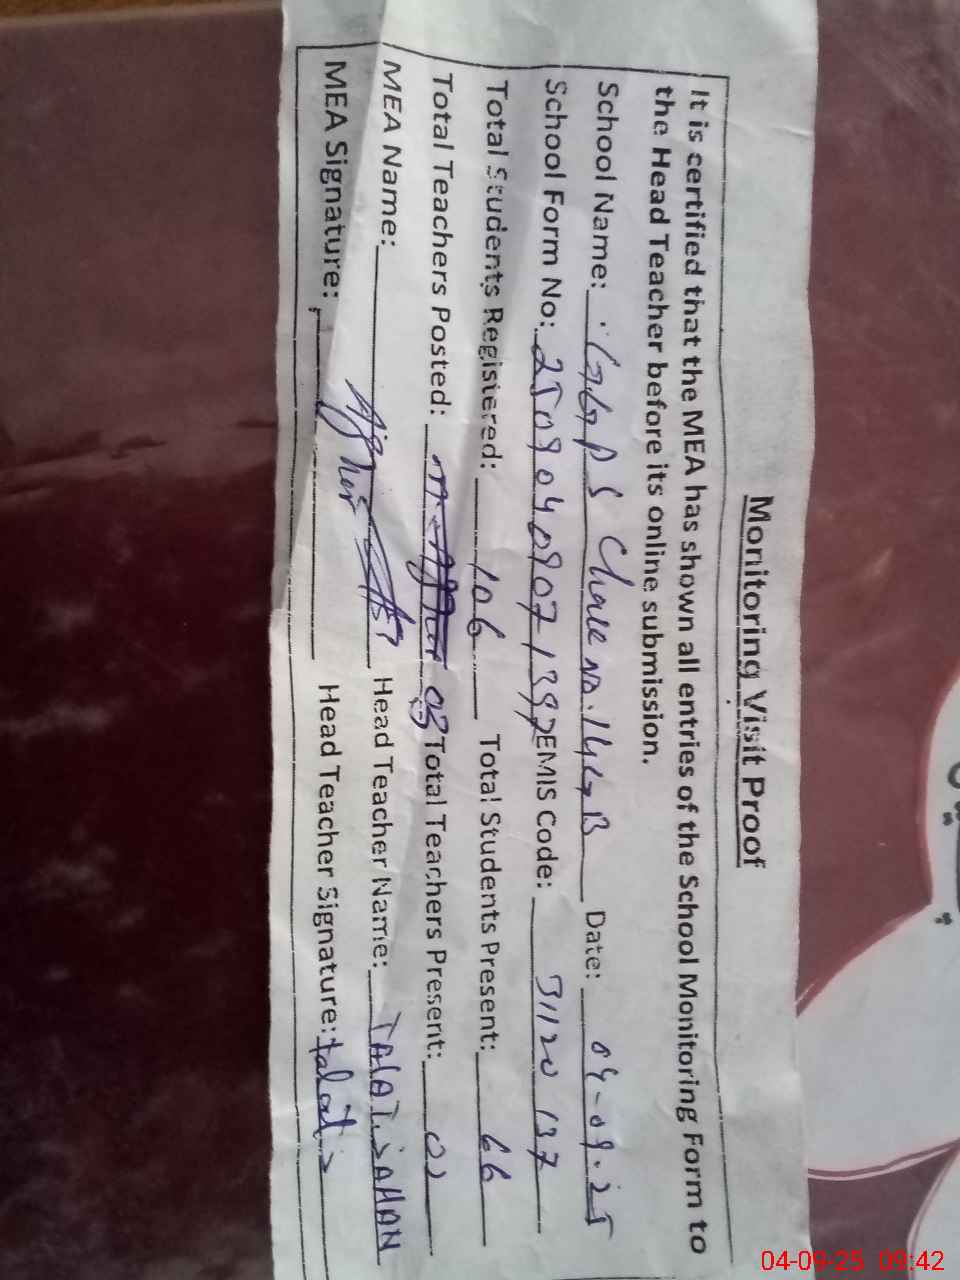 Monitoring Visit Proof
It is certified that the MEA has shown all entries of the School Monitoring Form to
the Head Teacher before its online submission.
School Name: G.G.P S Chak No. 14 G B Date: 04-09-25
School Form No: EMIS Code: 31120137
Total Students Registered: 106 Total Students Present: 66
Total Teachers Posted: 03 Total Teachers Present:
MEA Name: Head Teacher Name: TALAT JAHAN
MEA Signature: Head Teacher Signature: talat
04-09-25 09:42